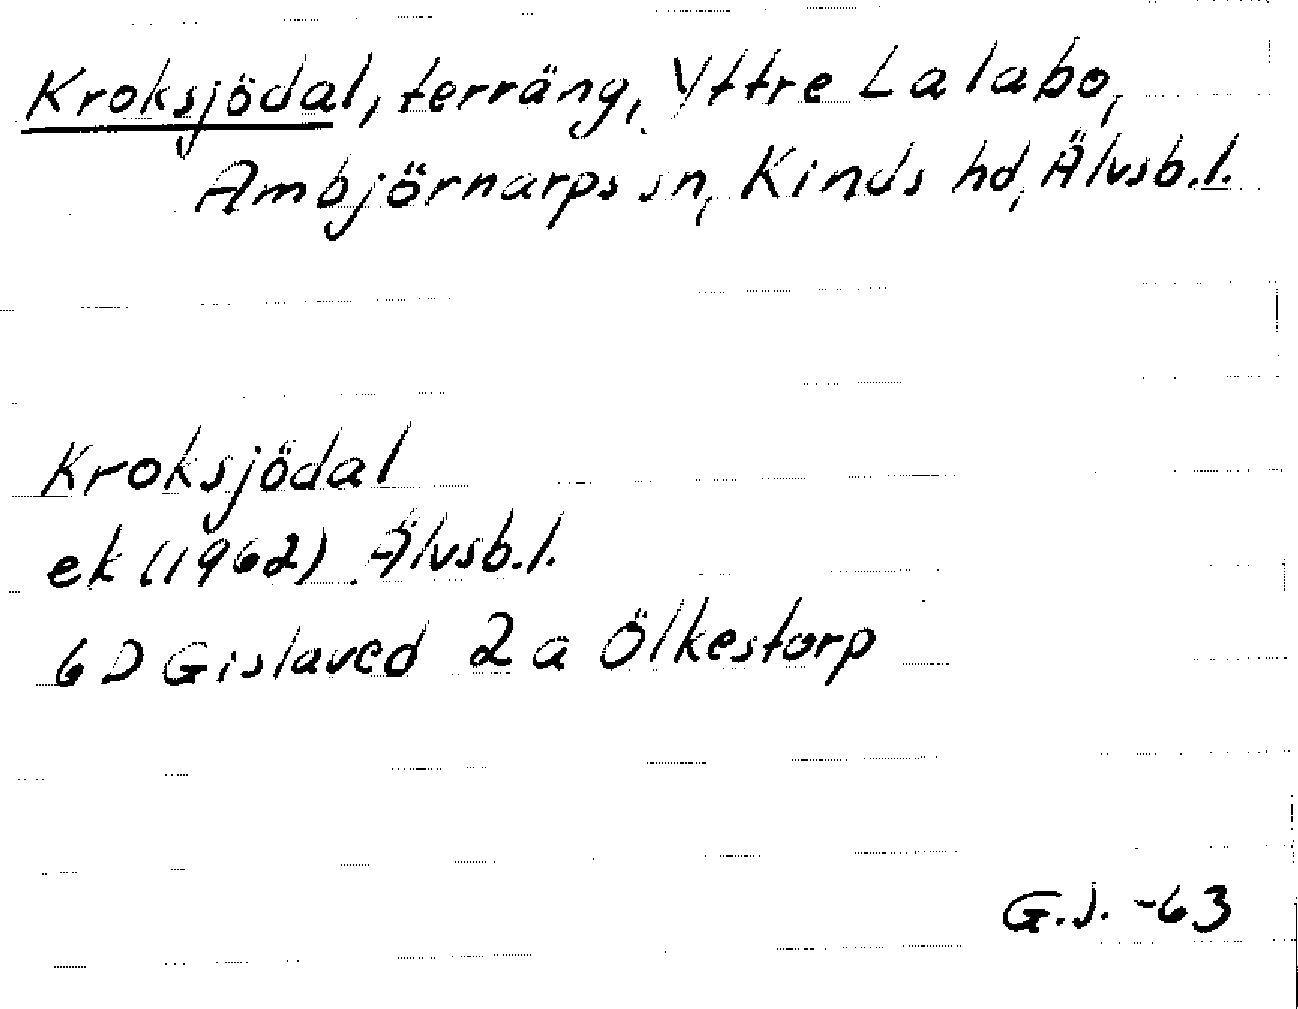 Kroksjödal, terräng, Yttre Lalabo,
Ambjörnarps sn, Kinds hd, Älvsb.l.
Kroksjödal
ek (1962) Älvsb.l.
6D Gislaved 2a Ölkestorp
G.J. -63